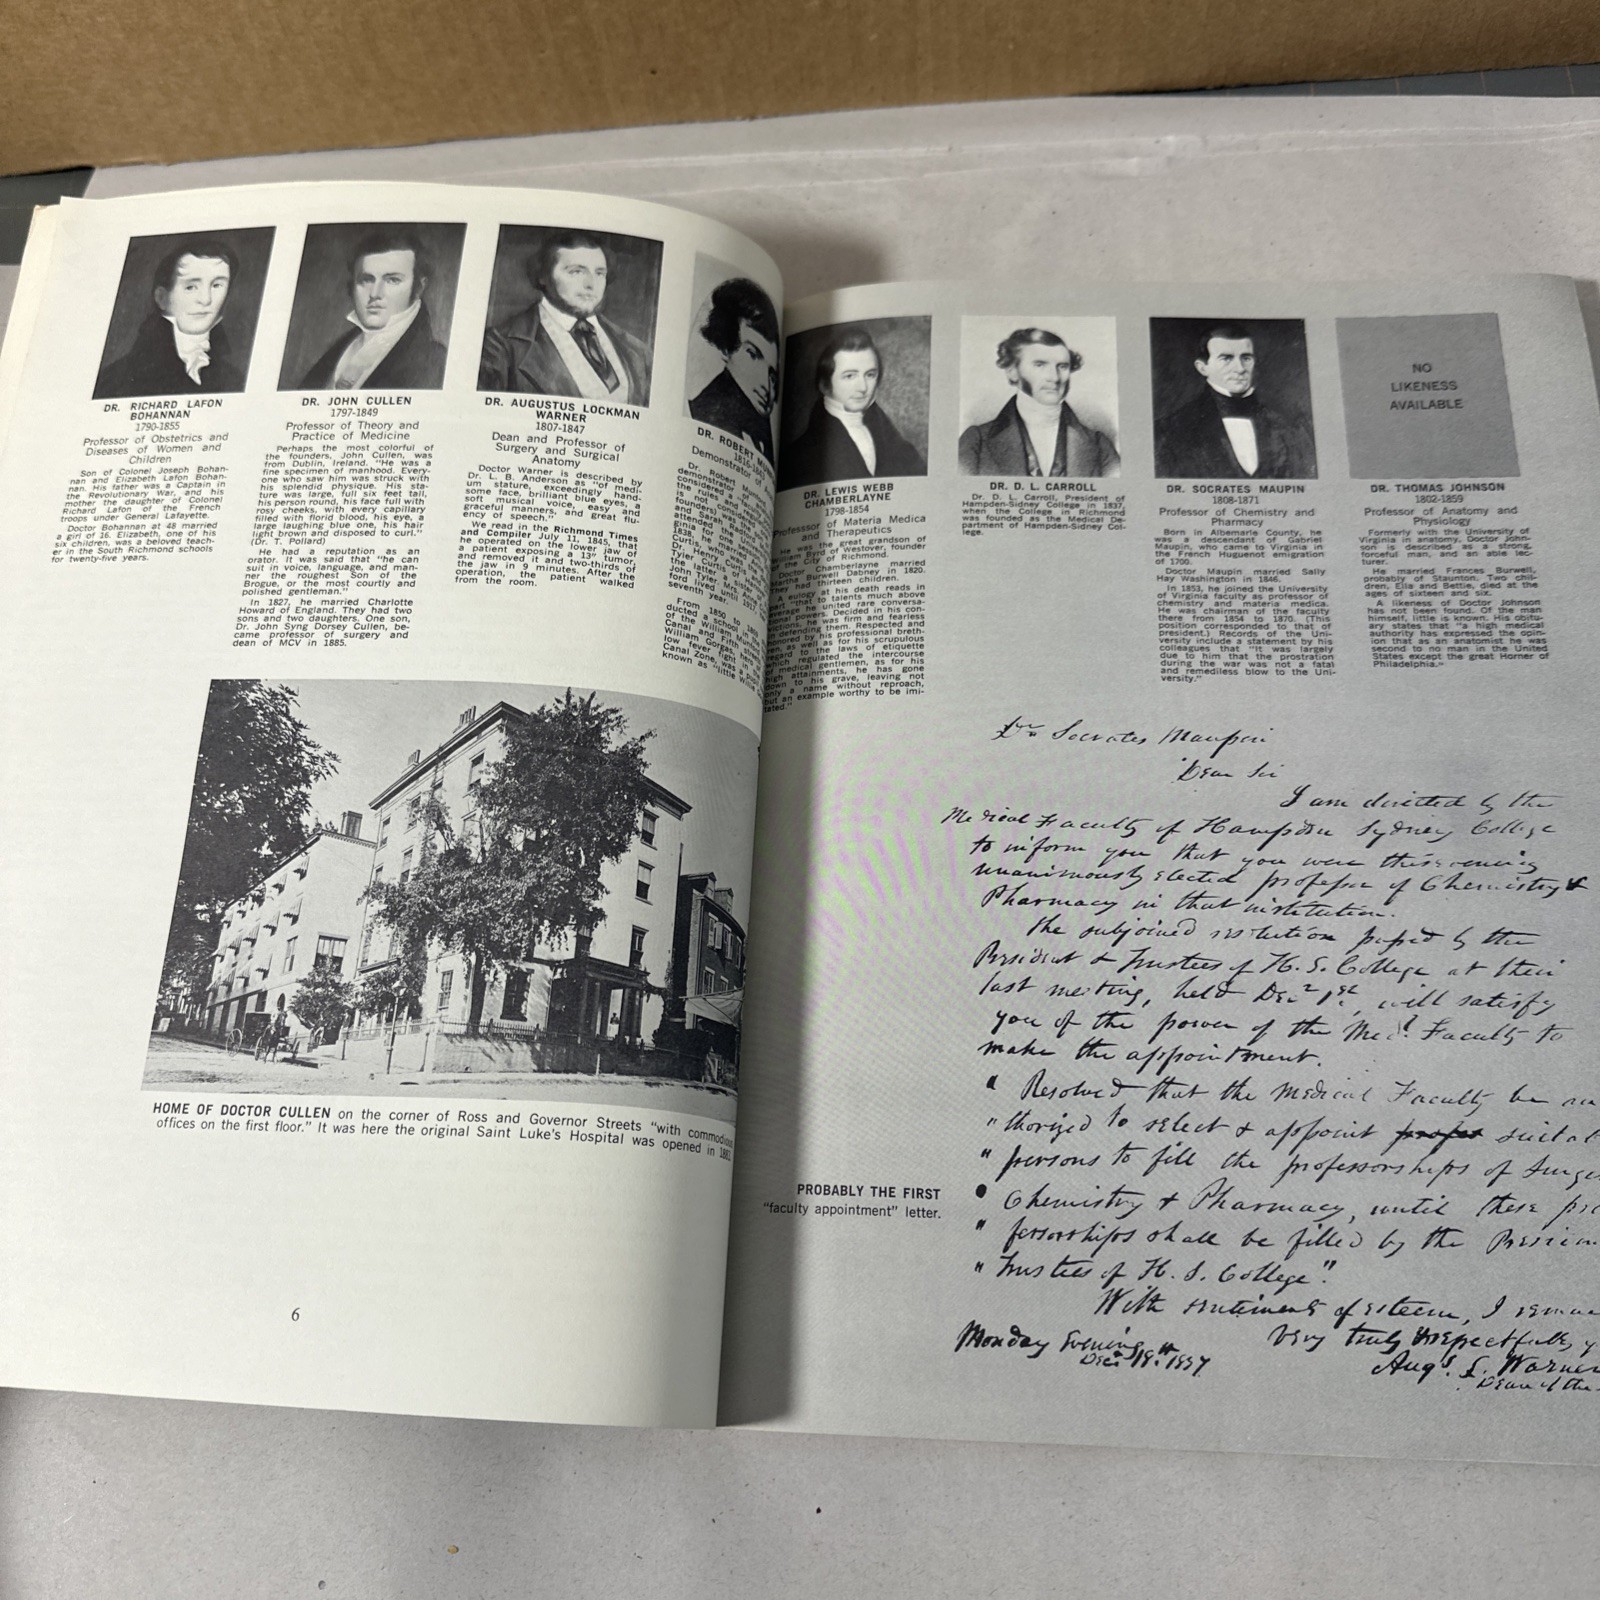 DR. RICHARD LAFON
BOHANNAN
1790-1855
Professor of Obstetrics and
Diseases of Women and
Children
Son of Colonel Joseph Bohan-
nan and Elizabeth Lafon Bohan-
nan. His father was a Captain in
the Revolutionary War, and his
mother the daughter of Colonel
Richard Lafon of the French
troops under General Lafayette.
Doctor Bohannan at 48 married
a girl of 16. Elizabeth, one of his
six children, was a beloved teach-
er in the South Richmond schools
for twenty-five years.
DR. JOHN CULLEN
1797-1849
Professor of Theory and
Practice of Medicine
Perhaps the most colorful of
the founders, John Cullen, was
from Dublin, Ireland. "He was a
fine specimen of manhood. Every-
one who saw him was struck with
his splendid physique. His sta-
ture was large, full six feet tall,
his person round, his face full with
rosy cheeks, with every capillary
filled with florid blood, his eye, a
large laughing blue one, his hair
light brown and disposed to curl."
(Dr. T. Pollard)
He had a reputation as an
orator. It was said that "he can
suit in voice, language, and man-
ner the roughest Son of the
Brogue, or the most courtly and
polished gentleman."
In 1827, he married Charlotte
Howard of England. They had two
sons and two daughters. One son,
Dr. John Syng Dorsey Cullen, be-
came professor of surgery and
dean of MCV in 1885.
DR. AUGUSTUS LOCKMAN
WARNER
1807-1847
Dean and Professor of
Surgery and Surgical
Anatomy
Doctor Warner is described by
Dr. L. B. Anderson as "of medi-
um stature, exceedingly hand-
some face, brilliant blue eyes, a
soft musical voice, easy and
graceful manners, and great flu-
ency of speech."
We read in the Richmond Times
and Compiler July 11, 1845, that
he operated on the lower jaw of
a patient exposing a 13" tumor,
and removed it and two-thirds of
the jaw in 9 minutes. After the
operation, the patient walked
from the room.
DR. ROBERT
Demonstrator of
Dr. Robert
HOME OF DOCTOR CULLEN on the corner of Ross and Governor Streets "with commodious
offices on the first floor." It was here the original Saint Luke's Hospital was opened in
6
DR. LEWIS WEBB
CHAMBERLAYNE
1798-1854
Professor of Materia Medica
and Therapeutics
He was the great grandson of
William Byrd of Westover, founder
of the City of Richmond.
Doctor Chamberlayne married
Martha Burwell Dabney in 1820.
They had thirteen children.
A eulogy at his death reads in
part "that to talents much above
average he united rare conversa-
tional powers. Decided in his con-
victions, he was firm and fearless
in defending them. Respected and
honored by his professional breth-
ren, as well as for his scrupulous
regard to the laws of etiquette
which regulated the intercourse
of medical gentlemen, as for his
high attainments, he has gone
down to his grave, leaving not
only a name without reproach,
but an example worthy to be imi-
tated."
DR. D. L. CARROLL
Dr. D. L. Carroll, President of
Hampden-Sidney College in 1837,
when the College in Richmond
was founded as the Medical De-
partment of Hampden-Sidney Col-
lege.
DR. SOCRATES MAUPIN
1808-1871
Professor of Chemistry and
Pharmacy
Born in Albemarle County, he
was a descendant of Gabriel
Maupin, who came to Virginia in
the French Huguenot emigration
of 1700.
Doctor Maupin married Sally
Hay Washington in 1846.
In 1853, he joined the University
of Virginia faculty as professor of
chemistry and materia medica.
He was chairman of the faculty
there from 1854 to 1870. (This
position corresponded to that of
president.) Records of the Uni-
versity include a statement by his
colleagues that "it was largely
due to him that the prostration
during the war was not a fatal
and remediless blow to the Uni-
versity."
NO
LIKENESS
AVAILABLE
DR. THOMAS JOHNSON
1802-1859
Professor of Anatomy and
Physiology
Formerly with the University of
Virginia in anatomy, Doctor John-
son is described as a strong,
forceful man, and an able lec-
turer.
He married Frances Burwell,
probably of Staunton. Two chil-
dren, Ella and Bettie, died at the
ages of sixteen and six.
A likeness of Doctor Johnson
has not been found. Of the man
himself, little is known. His obitu-
ary states that "a high medical
authority has expressed the opin-
ion that as an anatomist he was
second to no man in the United
States except the great Horner of
Philadelphia."
Socrates Maupin
Dear Sir
I am directed by the
Medical Faculty of Hampden Sydney College
to inform you that you were this evening
unanimously elected professor of Chemistry &
Pharmacy in that institution.
The subjoined resolution passed by the
President & Trustees of H. S. College at their
last meeting, held Decr 1st, will satisfy
you of the power of the Medl Faculty to
make the appointment.
" Resolved that the Medical Faculty be au
" thorized to select & appoint suitab
" persons to fill the professorships of Surge
Chemistry & Pharmacy, until these pro
" fessorships shall be filled by the Presiden
" Trustees of H. S. College"
With sentiments of esteem, I remain
Very truly & respectfully y
Monday Evening
Dec. 18th 1837
Augs. L. Warner
Dean of the
PROBABLY THE FIRST
"faculty appointment" letter.